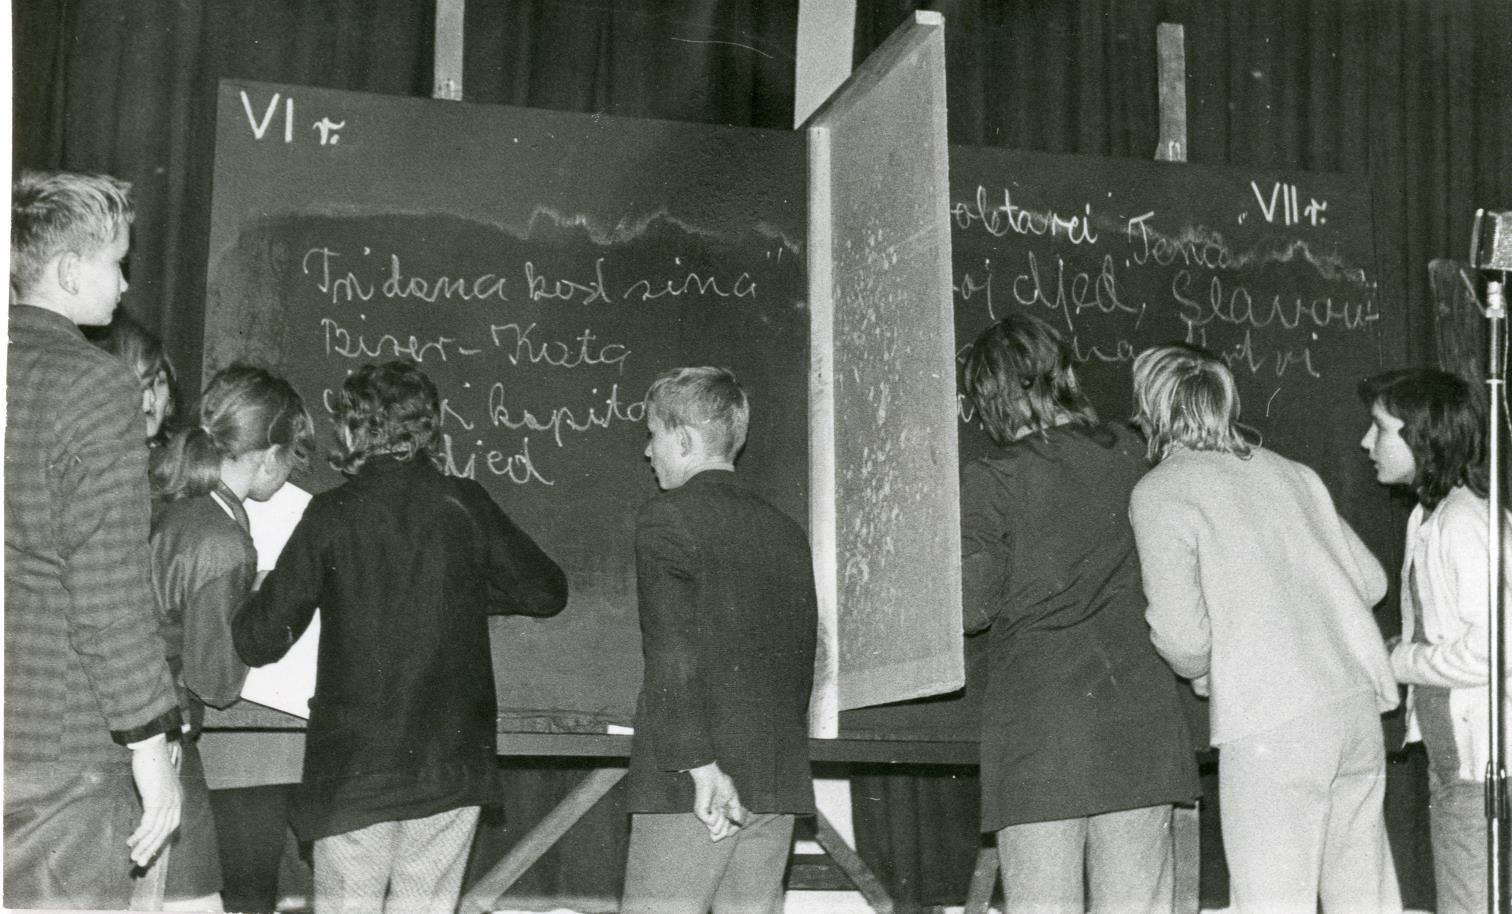 VI r.
Tri dana kod sina"
Biser-Kata
kapita
djed
VII r.
oletarci Tena
oj djed, Slavon